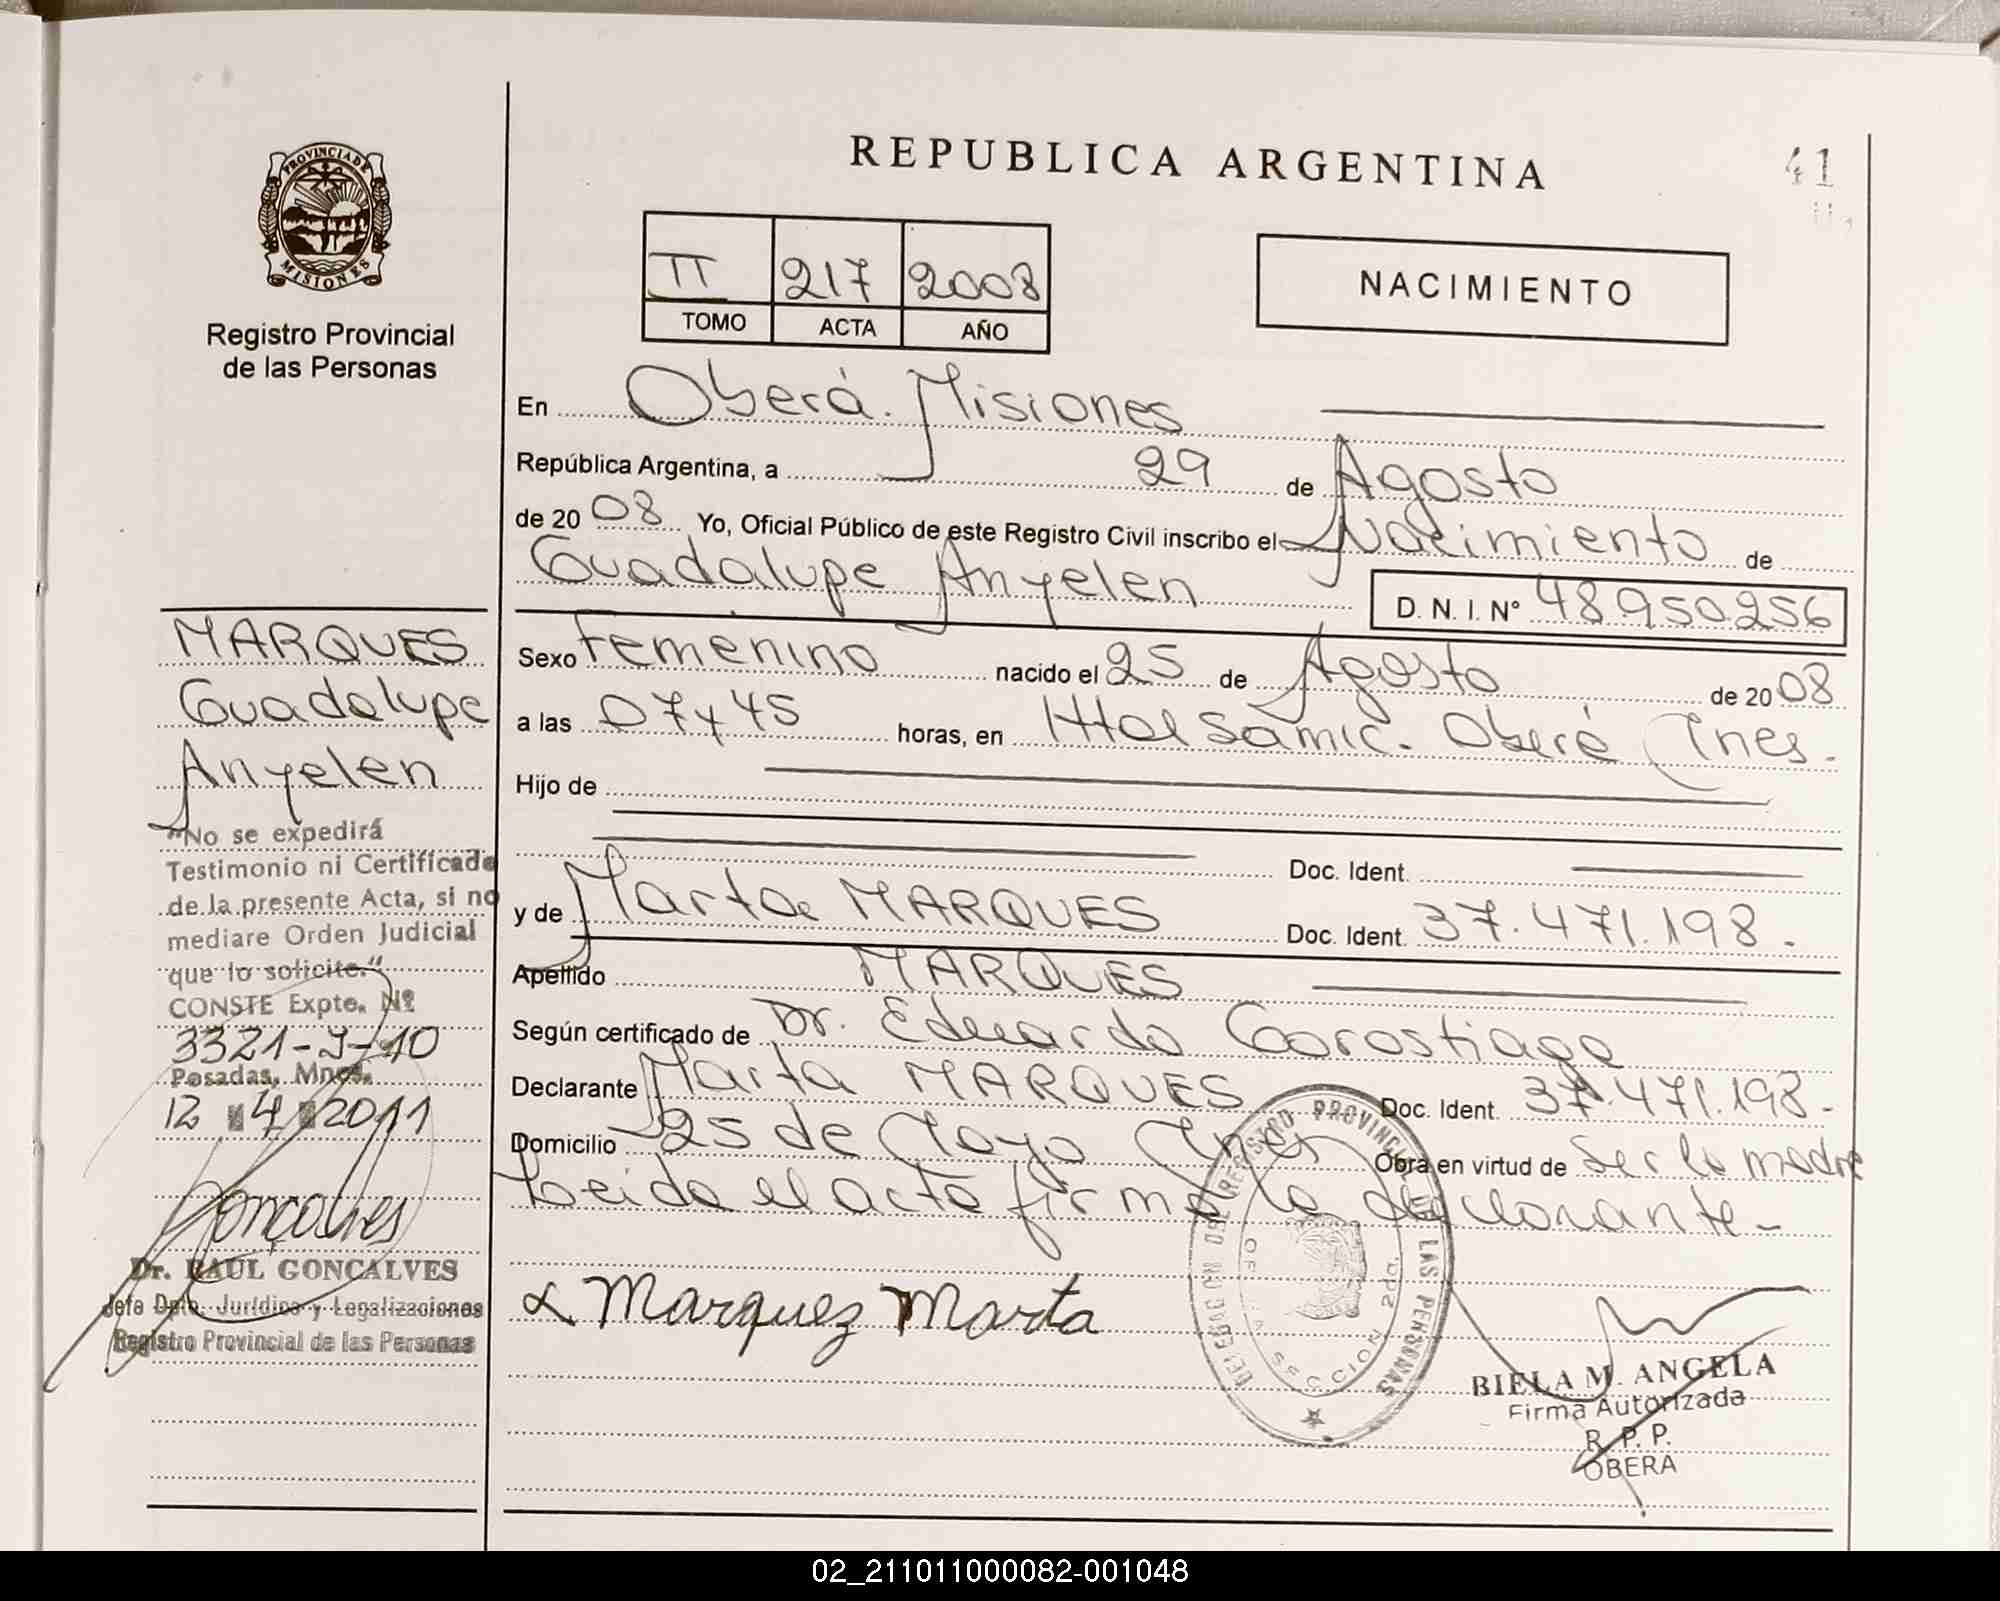 REPUBLICA ARGENTINA
41
PROVINCIA DE
MISIONES
Registro Provincial
de las Personas
II 217 2008
TOMO ACTA AÑO
NACIMIENTO
En Oberá. Misiones
República Argentina, a 29 de Agosto
de 20 08 Yo, Oficial Público de este Registro Civil inscribo el Nacimiento de
Guadalupe Anyelen D. N. I. Nº 48950256
Sexo Femenino nacido el 25 de Agosto de 20 08
a las 07 y 45 horas, en Htal Samic. Oberá Mnes.
Hijo de
Doc. Ident.
y de Marta MARQUES Doc. Ident. 37.471.198.
Apellido MARQUES
Según certificado de Dr. Eduardo Gorostiaga
Declarante Marta MARQUES Doc. Ident. 37.471.198.
Domicilio 25 de Mayo Mnes Obra en virtud de Ser la madre
Leida el acta firma la declarante.
Marquez Marta
DELEGACION DEL REGISTRO PROVINCIAL DE LAS PERSONAS
SECCION 2da.
BIELA M. ANGELA
Firma Autorizada
R. P. P.
OBERA
MARQUES
Guadalupe
Anyelen
"No se expedirá
Testimonio ni Certificado
de la presente Acta, si no
mediare Orden Judicial
que lo solicite."
CONSTE Expte. Nº
3321-J-10
Posadas, Mnes.
12 4 2011
Gonçalves
Dr. RAUL GONCALVES
Jefe Dpto. Jurídico y Legalizaciones
Registro Provincial de las Personas
02_211011000082-001048